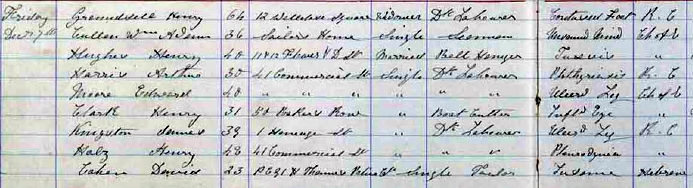 Friday Henry 64 12 Wellclose Square Widower Dk Labourer Contused Foot R. C
Decr 7th Cullen Wm Adams 36 Sailors Home Single Seaman Wound Hand Ch of E
Hughes Henry 40 Flower & D St Married Bell Hanger "
Harris Arthur 30 41 Commercial St Single Dk Labourer Phthyriasis R. C
Moore Edward 40 " " " " Ulcerd Leg Ch of E
Clark Henry 31 Bakers Row " Boot Cutter Eye "
Kingston James 38 1 Heneage St " Dk Labourer Ulcerd Leg R. C
Henry 48 41 Commercial St " " Pleurodynia "
Cohen David 23 Thames Police Ct Single Tailor Hebrew